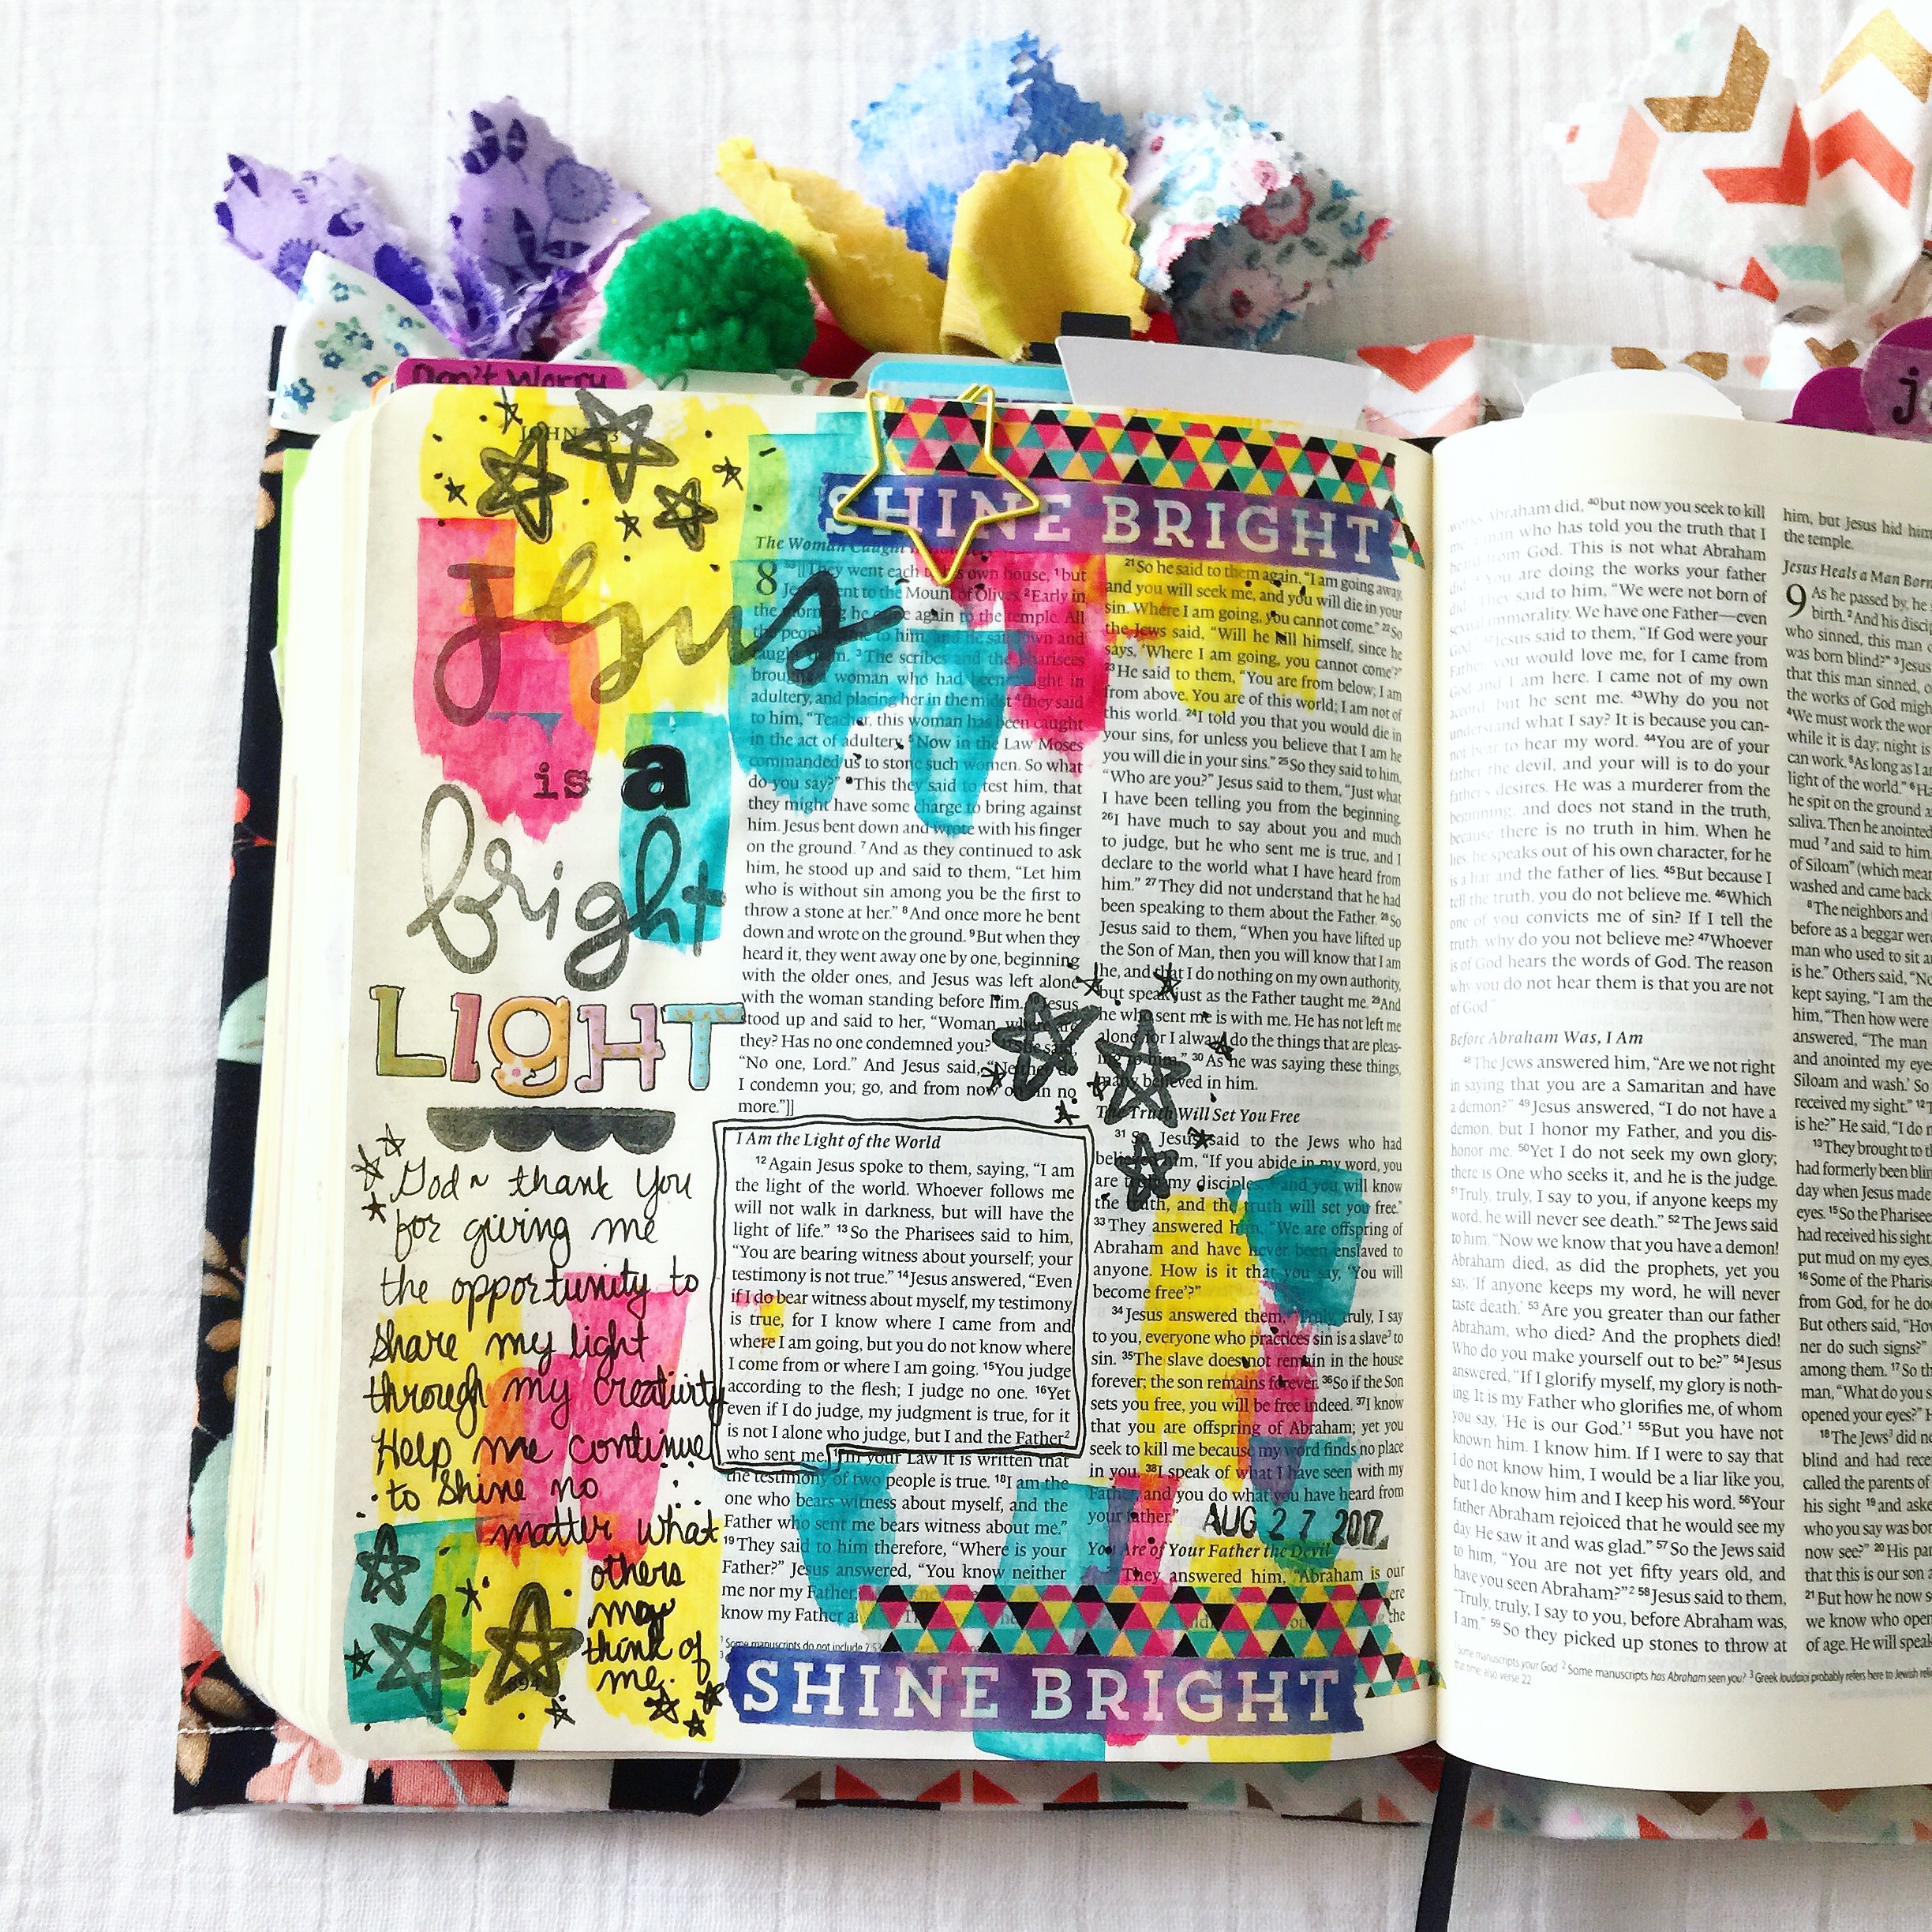 Don't Worry
SHINE BRIGHT
Jesus
is a
bright
LIGHT
God ~ thank you
for giving me
the opportunity to
share my light
through my creativity
Help me continue
to shine no
matter what
others
may
think of
me.
8
They went each own house, ¹but
to the Mount of Olives. ²Early in
he came again to the temple. All
to him, and he sat down and
³The scribes and the Pharisees
brought a woman who had been caught in
adultery, and placing her in the midst ⁴they said
to him, “Teacher, this woman has been caught
in the act of adultery. ⁵Now in the Law Moses
commanded us to stone such women. So what
do you say?” ⁶This they said to test him, that
they might have some charge to bring against
him. Jesus bent down and wrote with his finger
on the ground. ⁷And as they continued to ask
him, he stood up and said to them, “Let him
who is without sin among you be the first to
throw a stone at her.” ⁸And once more he bent
down and wrote on the ground. ⁹But when they
heard it, they went away one by one, beginning
with the older ones, and Jesus was left alone
with the woman standing before him. Jesus
stood up and said to her, “Woman, where are
they? Has no one condemned you?” She said,
“No one, Lord.” And Jesus said, “Neither do
I condemn you; go, and from now on sin no
more.”]]
I Am the Light of the World
¹²Again Jesus spoke to them, saying, “I am
the light of the world. Whoever follows me
will not walk in darkness, but will have the
light of life.” ¹³So the Pharisees said to him,
“You are bearing witness about yourself; your
testimony is not true.” ¹⁴Jesus answered, “Even
if I do bear witness about myself, my testimony
is true, for I know where I came from and
where I am going, but you do not know where
I come from or where I am going. ¹⁵You judge
according to the flesh; I judge no one. ¹⁶Yet
even if I do judge, my judgment is true, for it
is not I alone who judge, but I and the Father²
who sent me. ¹⁷In your Law it is written that
the testimony of two people is true. ¹⁸I am the
one who bears witness about myself, and the
Father who sent me bears witness about me.”
¹⁹They said to him therefore, “Where is your
Father?” Jesus answered, “You know neither
me nor my Father.
know my Father
¹ Some manuscripts do not include 7:53
²¹So he said to them again, “I am going away,
and you will seek me, and you will die in your
sin. Where I am going, you cannot come.” ²²So
the Jews said, “Will he kill himself, since he
says, ‘Where I am going, you cannot come’?”
²³He said to them, “You are from below; I am
from above. You are of this world; I am not of
this world. ²⁴I told you that you would die in
your sins, for unless you believe that I am he
you will die in your sins.” ²⁵So they said to him,
“Who are you?” Jesus said to them, “Just what
I have been telling you from the beginning.
²⁶I have much to say about you and much
to judge, but he who sent me is true, and I
declare to the world what I have heard from
him.” ²⁷They did not understand that he had
been speaking to them about the Father. ²⁸So
Jesus said to them, “When you have lifted up
the Son of Man, then you will know that I am
he, and that I do nothing on my own authority,
but speak just as the Father taught me. ²⁹And
he who sent me is with me. He has not left me
alone, for I always do the things that are pleas-
ing to him.” ³⁰As he was saying these things,
many believed in him.
The Truth Will Set You Free
³¹So Jesus said to the Jews who had
believed him, “If you abide in my word, you
are truly my disciples, and you will know
the truth, and the truth will set you free.”
³³They answered him, “We are offspring of
Abraham and have never been enslaved to
anyone. How is it that you say, ‘You will
become free’?”
³⁴Jesus answered them, “Truly, truly, I say
to you, everyone who practices sin is a slave³ to
sin. ³⁵The slave does not remain in the house
forever; the son remains forever. ³⁶So if the Son
sets you free, you will be free indeed. ³⁷I know
that you are offspring of Abraham; yet you
seek to kill me because my word finds no place
in you. ³⁸I speak of what I have seen with my
Father, and you do what you have heard from
your father.”
AUG 27 2017
You Are of Your Father the Devil
They answered him, “Abraham is our
SHINE BRIGHT
Abraham did, ⁴⁰but now you seek to kill
man who has told you the truth that I
from God. This is not what Abraham
You are doing the works your father
They said to him, “We were not born of
sexual immorality. We have one Father—even
Jesus said to them, “If God were your
Father, you would love me, for I came from
God and I am here. I came not of my own
accord, but he sent me. ⁴³Why do you not
understand what I say? It is because you can-
not bear to hear my word. ⁴⁴You are of your
father the devil, and your will is to do your
father's desires. He was a murderer from the
beginning, and does not stand in the truth,
because there is no truth in him. When he
lies, he speaks out of his own character, for he
is a liar and the father of lies. ⁴⁵But because I
tell the truth, you do not believe me. ⁴⁶Which
one of you convicts me of sin? If I tell the
truth, why do you not believe me? ⁴⁷Whoever
is of God hears the words of God. The reason
why you do not hear them is that you are not
of God.”
Before Abraham Was, I Am
⁴⁸The Jews answered him, “Are we not right
in saying that you are a Samaritan and have
a demon?” ⁴⁹Jesus answered, “I do not have a
demon, but I honor my Father, and you dis-
honor me. ⁵⁰Yet I do not seek my own glory;
there is One who seeks it, and he is the judge.
⁵¹Truly, truly, I say to you, if anyone keeps my
word, he will never see death.” ⁵²The Jews said
to him, “Now we know that you have a demon!
Abraham died, as did the prophets, yet you
say, ‘If anyone keeps my word, he will never
taste death.’ ⁵³Are you greater than our father
Abraham, who died? And the prophets died!
Who do you make yourself out to be?” ⁵⁴Jesus
answered, “If I glorify myself, my glory is noth-
ing. It is my Father who glorifies me, of whom
you say, ‘He is our God.’¹ ⁵⁵But you have not
known him. I know him. If I were to say that
I do not know him, I would be a liar like you,
but I do know him and I keep his word. ⁵⁶Your
father Abraham rejoiced that he would see my
day. He saw it and was glad.” ⁵⁷So the Jews said
to him, “You are not yet fifty years old, and
have you seen Abraham?”² ⁵⁸Jesus said to them,
“Truly, truly, I say to you, before Abraham was,
I am.” ⁵⁹So they picked up stones to throw at
him, but Jesus hid him
the temple.
Jesus Heals a Man Born
9 As he passed by, he
birth. ²And his discip
who sinned, this man o
was born blind?” ³Jesus
that this man sinned, o
the works of God migh
⁴We must work the wor
while it is day; night is
can work. ⁵As long as I a
light of the world.” ⁶Ha
he spit on the ground a
saliva. Then he anointed
mud ⁷and said to him
of Siloam” (which mean
washed and came back
⁸The neighbors and
before as a beggar were
man who used to sit a
is he.” Others said, “No
kept saying, “I am the
him, “Then how were
answered, “The man
and anointed my eyes
Siloam and wash.’ So
received my sight.” ¹²T
is he?” He said, “I do n
¹³They brought to th
had formerly been blin
day when Jesus made
eyes. ¹⁵So the Pharisee
had received his sight.
put mud on my eyes,
¹⁶Some of the Pharis
from God, for he do
But others said, “How
ner do such signs?”
among them. ¹⁷So th
man, “What do you s
opened your eyes?” H
¹⁸The Jews³ did no
blind and had rece
called the parents of
his sight ¹⁹and aske
who you say was bor
now see?” ²⁰His par
that this is our son a
²¹But how he now s
we know who open
of age. He will speak
² Some manuscripts has Abraham seen you? ³ Greek Ioudaioi probably refers here to Jewish reli